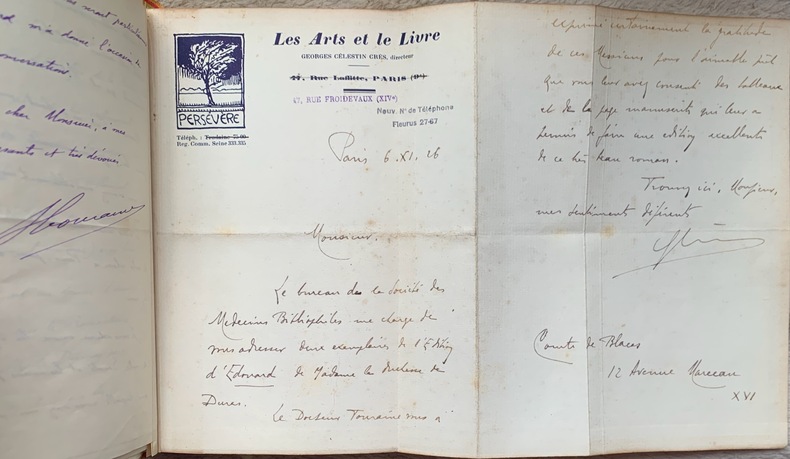 sont
m'a donné l'occasion
conversation.
cher Monsieur, à me
et très dévoué
PERSÉVÈRE
Téléph. : Trudaine 75-00
Reg. Comm. Seine 333.335
Les Arts et le Livre
GEORGES CÉLESTIN CRÈS, directeur
47, Rue Laffitte, PARIS (9e)
47, RUE FROIDEVAUX (XIVe)
Nouv. No de Téléphone
Fleurus 27-67
Paris 6.XI.26
Monsieur,
Le bureau de la Société des
Médecins Bibliophiles me charge de
adresser deux exemplaires de l'Edition
d'Edouard de Madame la Duchesse de
Duras.
Le Docteur Touraine m'a
exprimé la gratitude
de ces Messieurs pour l'aimable prêt
que vous leur avez consenti des tableaux
et de la page manuscrite qui leur a
permis de faire une edition excellente
de ce très beau roman.
Trouvez ici, Monsieur,
mes sentiments déférents
Comte de Blacas
12 Avenue Marceau
XVI